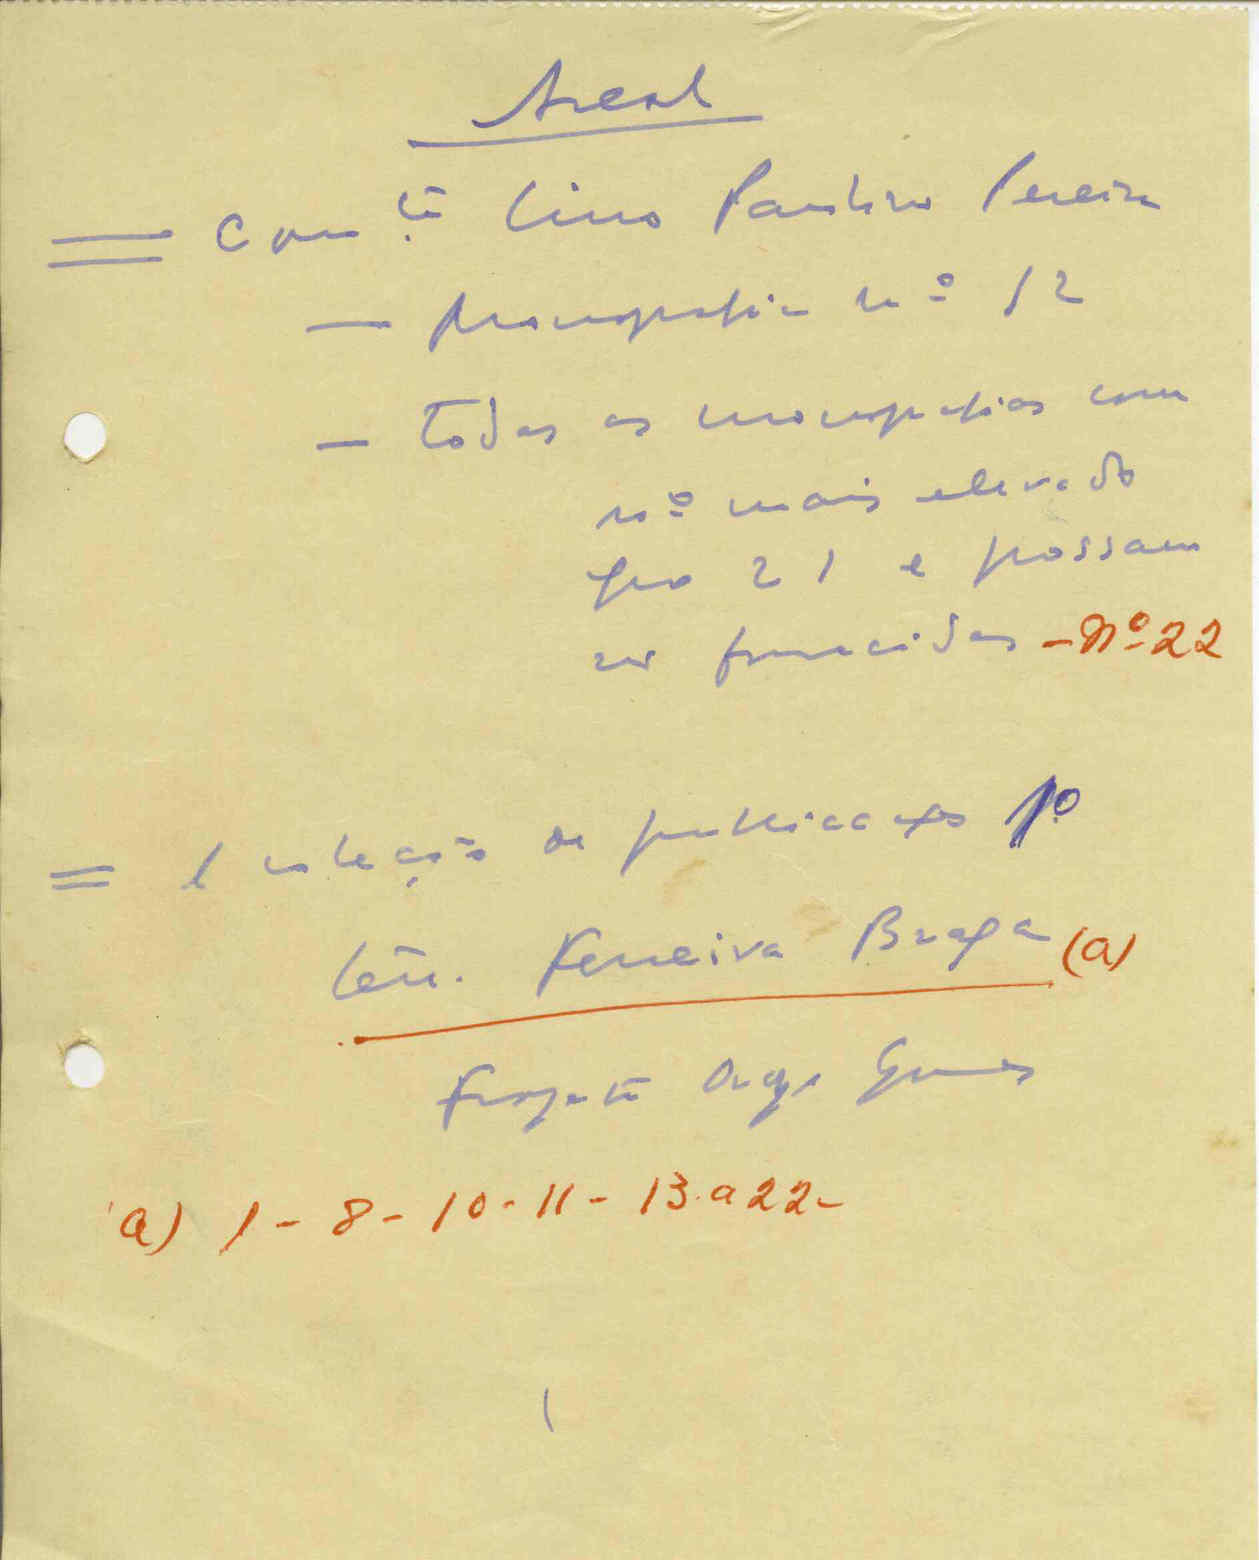 Areal
= Com.te Lino Paulino Pereira
— Monografia nº 12
— Todas as monografias com
nº mais elevado
que 21 e possam
ser fornecidas - Nº 22
= 1 coleção de publicacões pº
Ten. Ferreira Braga (a)
Gomes
a) 1 - 8 - 10 - 11 - 13 a 22 -